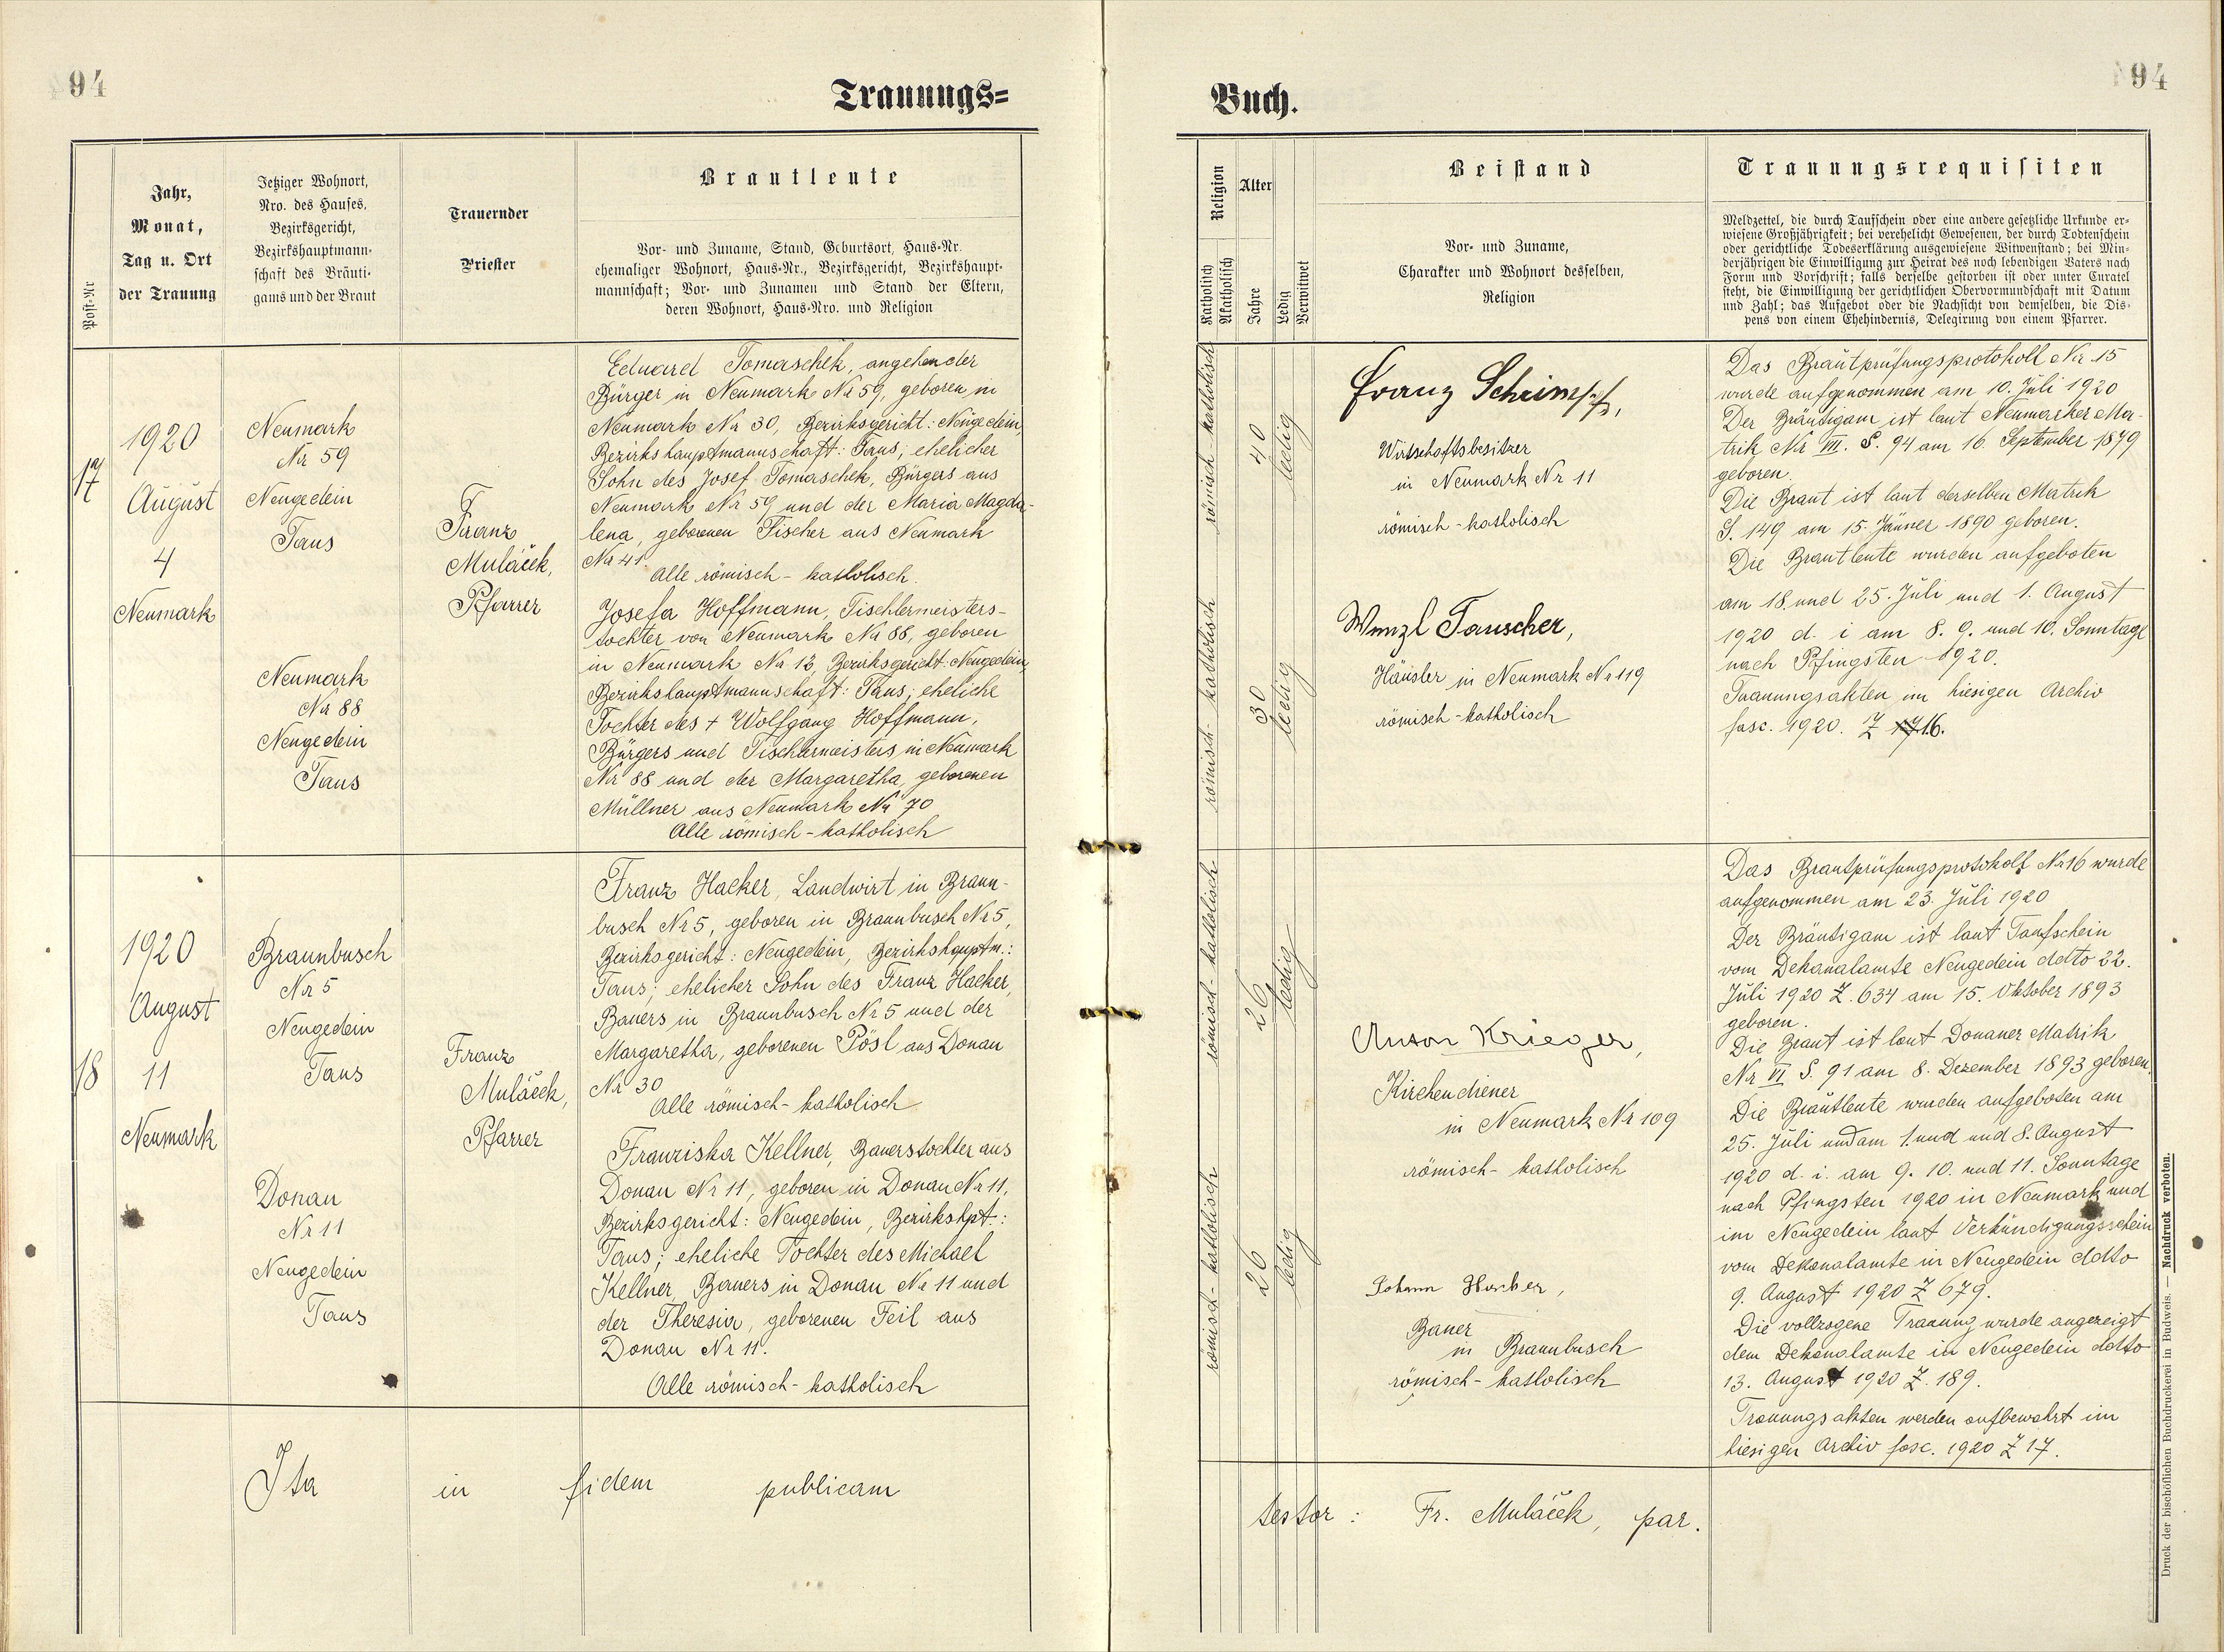 94
Trauungs=
Jahr,
Monat,
Tag u. Ort
der Trauung
Post-Nr
Jetziger Wohnort,
Nro. des Hauses,
Bezirksgericht,
Bezirkshauptmann-
schaft des Bräuti-
gams und der Braut
Trauernder
Priester
Brautleute
Vor- und Zuname, Stand, Geburtsort, Haus-Nr.
ehemaliger Wohnort, Haus-Nr., Bezirksgericht, Bezirkshaupt-
mannschaft; Vor- und Zunamen und Stand der Eltern,
deren Wohnort, Haus-Nro. und Religion
17
1920
August
4
Neumark
Neumark
Nr 59
Neugedein
Taus
Neumark
Nr 88
Neugedein
Taus
Franz
Muláček,
Pfarrer
Eduard Tomaschek, angehender
Bürger in Neumark Nr 59, geboren in
Neumark Nr 30, Bezirksgericht: Neugedein,
Bezirkshauptmannschaft: Taus; ehelicher
Sohn des Josef Tomaschek, Bürgers aus
Neumark Nr 59 und der Maria Magda-
lena, geborenen Fischer aus Neumark
Nr 41.
Alle römisch-katholisch.
Josefa Hoffmann, Tischlermeisters-
tochter von Neumark Nr 88, geboren
in Neumark Nr 13, Bezirksgericht: Neugedein,
Bezirkshauptmannschaft: Taus; eheliche
Tochter des + Wolfgang Hoffmann,
Bürgers und Tischlermeisters in Neumark
Nr 88 und der Margaretha, geborenen
Müllner aus Neumark Nr 70
Alle römisch-katholisch
18
1920
August
11
Neumark
Braunbusch
Nr 5
Neugedein
Taus
Donau
Nr 11
Neugedein
Taus
Franz
Muláček,
Pfarrer
Franz Hacker, Landwirt in Braun-
busch Nr 5, geboren in Braunbusch Nr 5,
Bezirksgericht: Neugedein, Bezirkshauptm.:
Taus; ehelicher Sohn des Franz Hacker,
Bauers in Braunbusch Nr 5 und der
Margaretha, geborenen Pösl aus Donau
Nr 30
Alle römisch-katholisch
Franziska Kellner, Bauerstochter aus
Donau Nr 11, geboren in Donau Nr 11,
Bezirksgericht: Neugedein, Bezirkshpt.:
Taus; eheliche Tochter des Michael
Kellner, Bauers in Donau Nr 11 und
der Theresia, geborenen Feil aus
Donau Nr 11.
Alle römisch-katholisch
Ita in fidem publicam
94
Buch.
Religion
Katholisch
Akatholisch
Alter
Jahre
Ledig
Verwitwet
Beistand
Vor- und Zuname,
Charakter und Wohnort desselben,
Religion
Trauungsrequisiten
Meldzettel, die durch Taufschein oder eine andere gesetzliche Urkunde er-
wiesene Großjährigkeit; bei verehelicht Gewesenen, der durch Todtenschein
oder gerichtliche Todeserklärung ausgewiesene Witwenstand; bei Min-
derjährigen die Einwilligung zur Heirat des noch lebendigen Vaters nach
Form und Vorschrift; falls derselbe gestorben ist oder unter Curatel
steht, die Einwilligung der gerichtlichen Obervormundschaft mit Datum
und Zahl; das Aufgebot oder die Nachsicht von demselben, die Dis-
pens von einem Ehehindernis, Delegirung von einem Pfarrer.
römisch katholisch
40
ledig
römisch-katholisch
30
ledig
Franz Schrimpf,
Wirtschaftsbesitzer
in Neumark Nr 11
römisch-katholisch
Wenzl Tauscher,
Häusler in Neumark Nr 119
römisch-katholisch
Das Brautprüfungsprotokoll Nr 15
wurde aufgenommen am 10. Juli 1920
Der Bräutigam ist laut Neumarker Ma-
trik Nr VII. S. 94 am 16. September 1879
geboren.
Die Braut ist laut derselben Matrik
S. 149 am 15. Jänner 1890 geboren.
Die Brautleute wurden aufgeboten
am 18. und 25. Juli und 1. August
1920 d. i am 8. 9. und 10. Sonntage
nach Pfingsten 1920.
Trauungsakten im hiesigen Archiv
fasc. 1920. Z 16.
römisch-katholisch
26
ledig
römisch-katholisch
26
ledig
Anton Krieger,
Kirchendiener
in Neumark Nr 109
römisch-katholisch
Johann Hacker,
Bauer
in Braunbusch
römisch-katholisch
Das Brautprüfungsprotokoll Nr 16 wurde
aufgenommen am 23. Juli 1920
Der Bräutigam ist laut Taufschein
vom Dekanalamte Neugedein ddto 22.
Juli 1920 Z. 634 am 15. Oktober 1893
geboren.
Die Braut ist laut Donauer Matrik
Nr VI S. 91 am 8. Dezember 1893 geboren.
Die Brautleute wurden aufgeboten am
25. Juli und am 1. und und 8. August
1920 d. i. am 9. 10. und 11. Sonntage
nach Pfingsten 1920 in Neumark und
im Neugedein laut Verkündigungsschein
vom Dekanalamte in Neugedein ddto
9. August 1920 Z 679.
Die vollzogene Trauung wurde angezeigt
dem Dekanalamte in Neugedein ddto
13. August 1920 Z. 189.
Trauungsakten werden aufbewahrt im
hiesigen Archiv fasc. 1920 Z 17.
testor: Fr. Muláček, par.
Druck der bischöflichen Buchdruckerei in Budweis. — Nachdruck verboten.